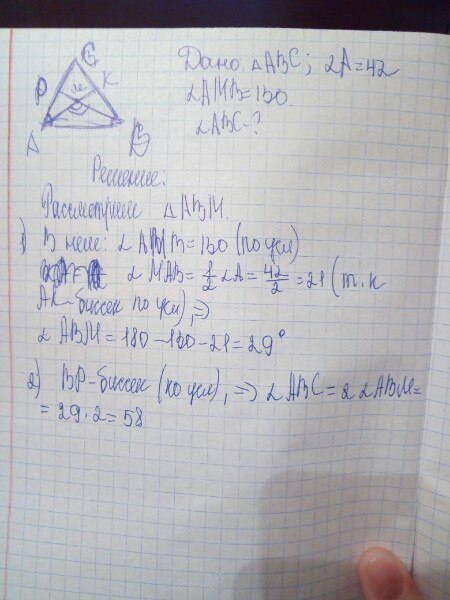 C
P
K
M
A
B
Дано: △ABC; ∠A=42
∠AMB=130
∠ABC-?
Решение:
Рассмотрим △ABM.
1) В нем: ∠AMB=130 (по усл)
∠MAB=1/2∠A=42/2=21 (т.к
AK-биссек по усл), ⇒
∠ABM=180-130-21=29°
2) BP-биссек (по усл), ⇒ ∠ABC=2∠ABM=
=29·2=58